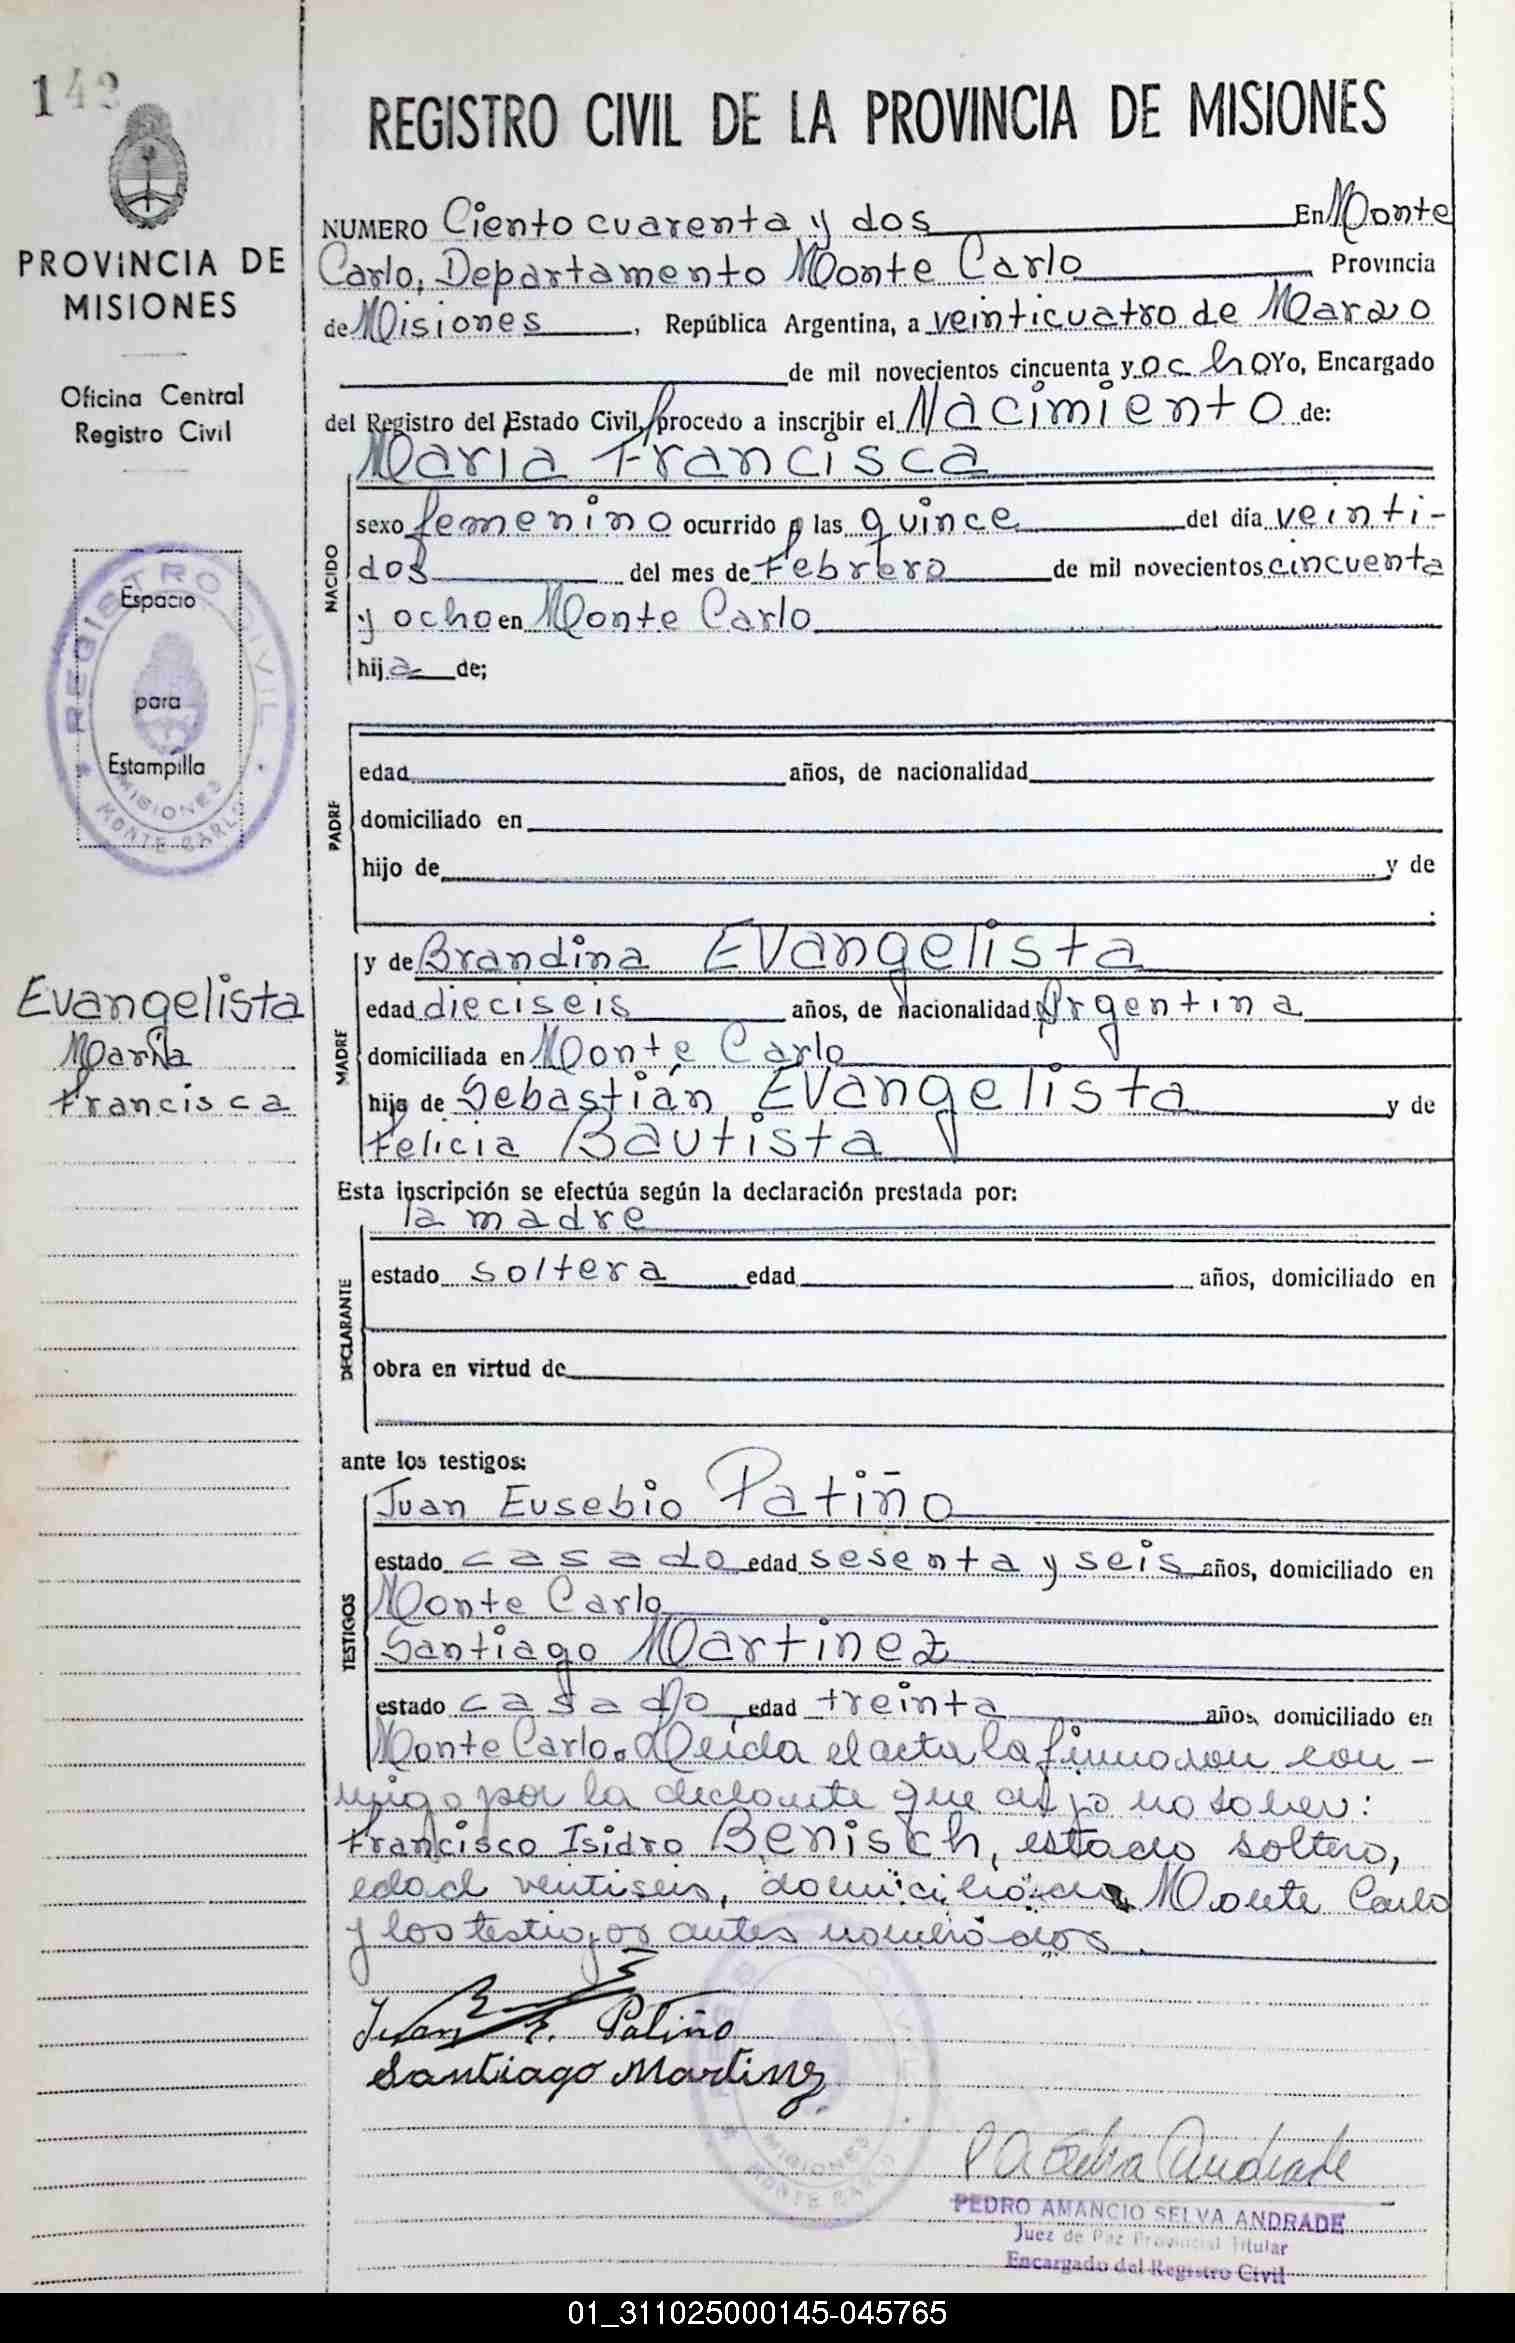 142
REGISTRO CIVIL DE LA PROVINCIA DE MISIONES
PROVINCIA DE
MISIONES
Oficina Central
Registro Civil
REGISTRO CIVIL
Espacio
para
Estampilla
MISIONES
MONTE CARLO
Evangelista
Maria
Francisca
NUMERO Ciento cuarenta y dos En Monte
Carlo, Departamento Monte Carlo Provincia
de Misiones, República Argentina, a veinticuatro de Marzo
de mil novecientos cincuenta y ocho Yo, Encargado
del Registro del Estado Civil, procedo a inscribir el Nacimiento de:
NACIDO
Maria Francisca
sexo femenino ocurrido a las quince del día veinti-
dos del mes de Febrero de mil novecientos cincuenta
y ocho en Monte Carlo
hija de;
PADRE
edad años, de nacionalidad
domiciliado en
hijo de y de
MADRE
y de Brandina Evangelista
edad dieciseis años, de nacionalidad Argentina
domiciliada en Monte Carlo
hija de Sebastián Evangelista y de
Felicia Bautista
Esta inscripción se efectúa según la declaración prestada por:
DECLARANTE
la madre
estado soltera edad años, domiciliado en
obra en virtud de
ante los testigos:
TESTIGOS
Juan Eusebio Patiño
estado casado edad sesenta y seis años, domiciliado en
Monte Carlo
Santiago Martinez
estado casado edad treinta años, domiciliado en
Monte Carlo. Leída el acta la firmaron con-
migo por la declarante que dijo no saber:
Francisco Isidro Benisch, estado soltero,
edad ventiseis, domicilio en Monte Carlo
y los testigos antes nombrados.
Juan E. Patiño
Santiago Martinez
MISIONES
MONTE CARLO
Andrade
PEDRO AMANCIO SELVA ANDRADE
Juez de Paz Provincial Titular
Encargado del Registro Civil
01_311025000145-045765